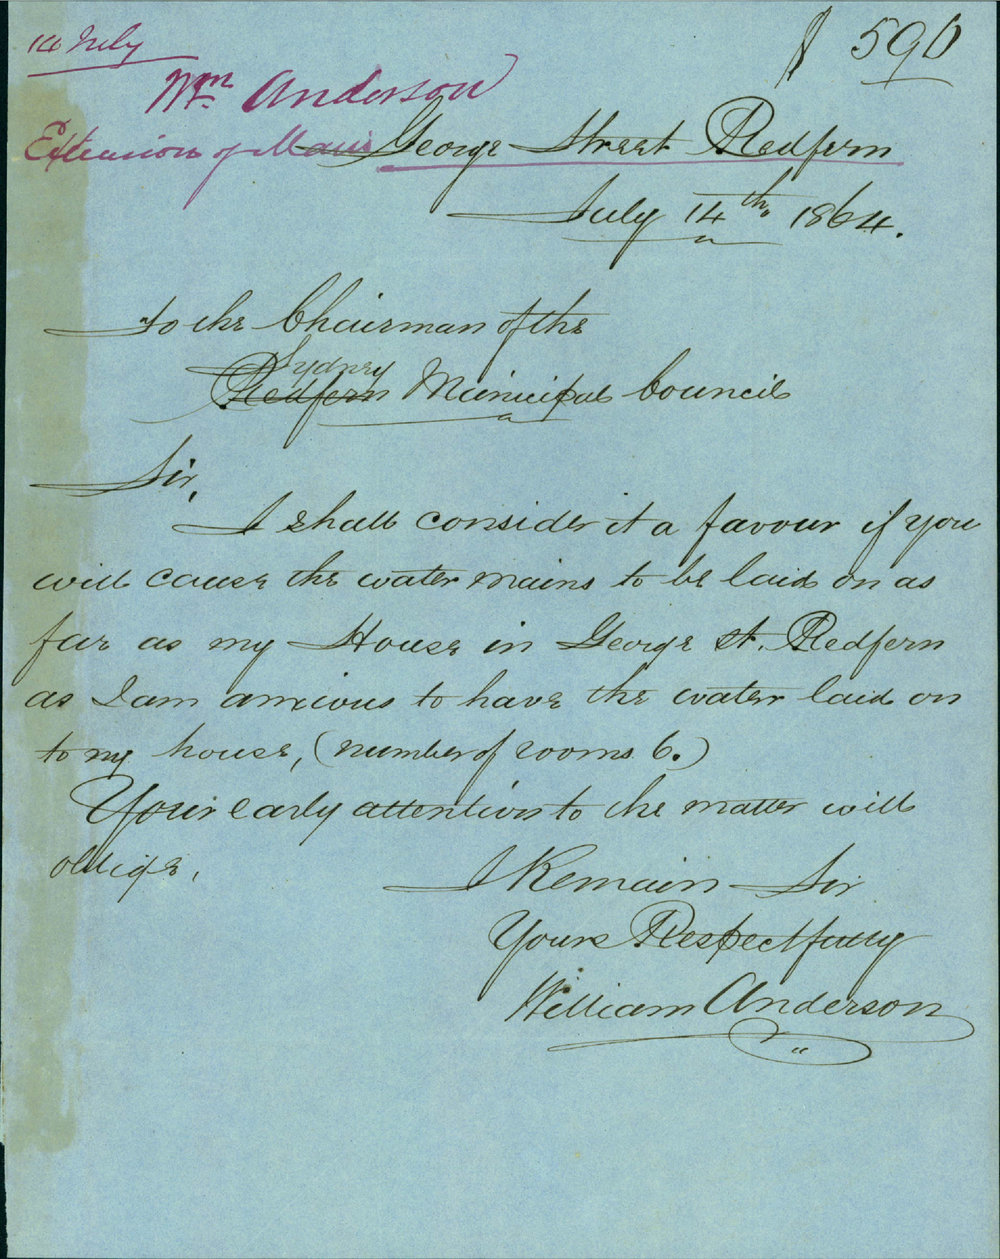 14 July
590
Wm Anderson
Extension of Main George Street Redfern
July 14th 1864.
To the Chairman of the
Sydney
Redfern Municipal Council
Sir,
I shall consider it a favour if you
will cause the water mains to be laid on as
far as my House in George st. Redfern
as I am anxious to have the water laid on
to my house, (number of rooms 6.)
Your early attention to the matter will
oblige,
I Remain Sir
Yours Respectfully
William Anderson